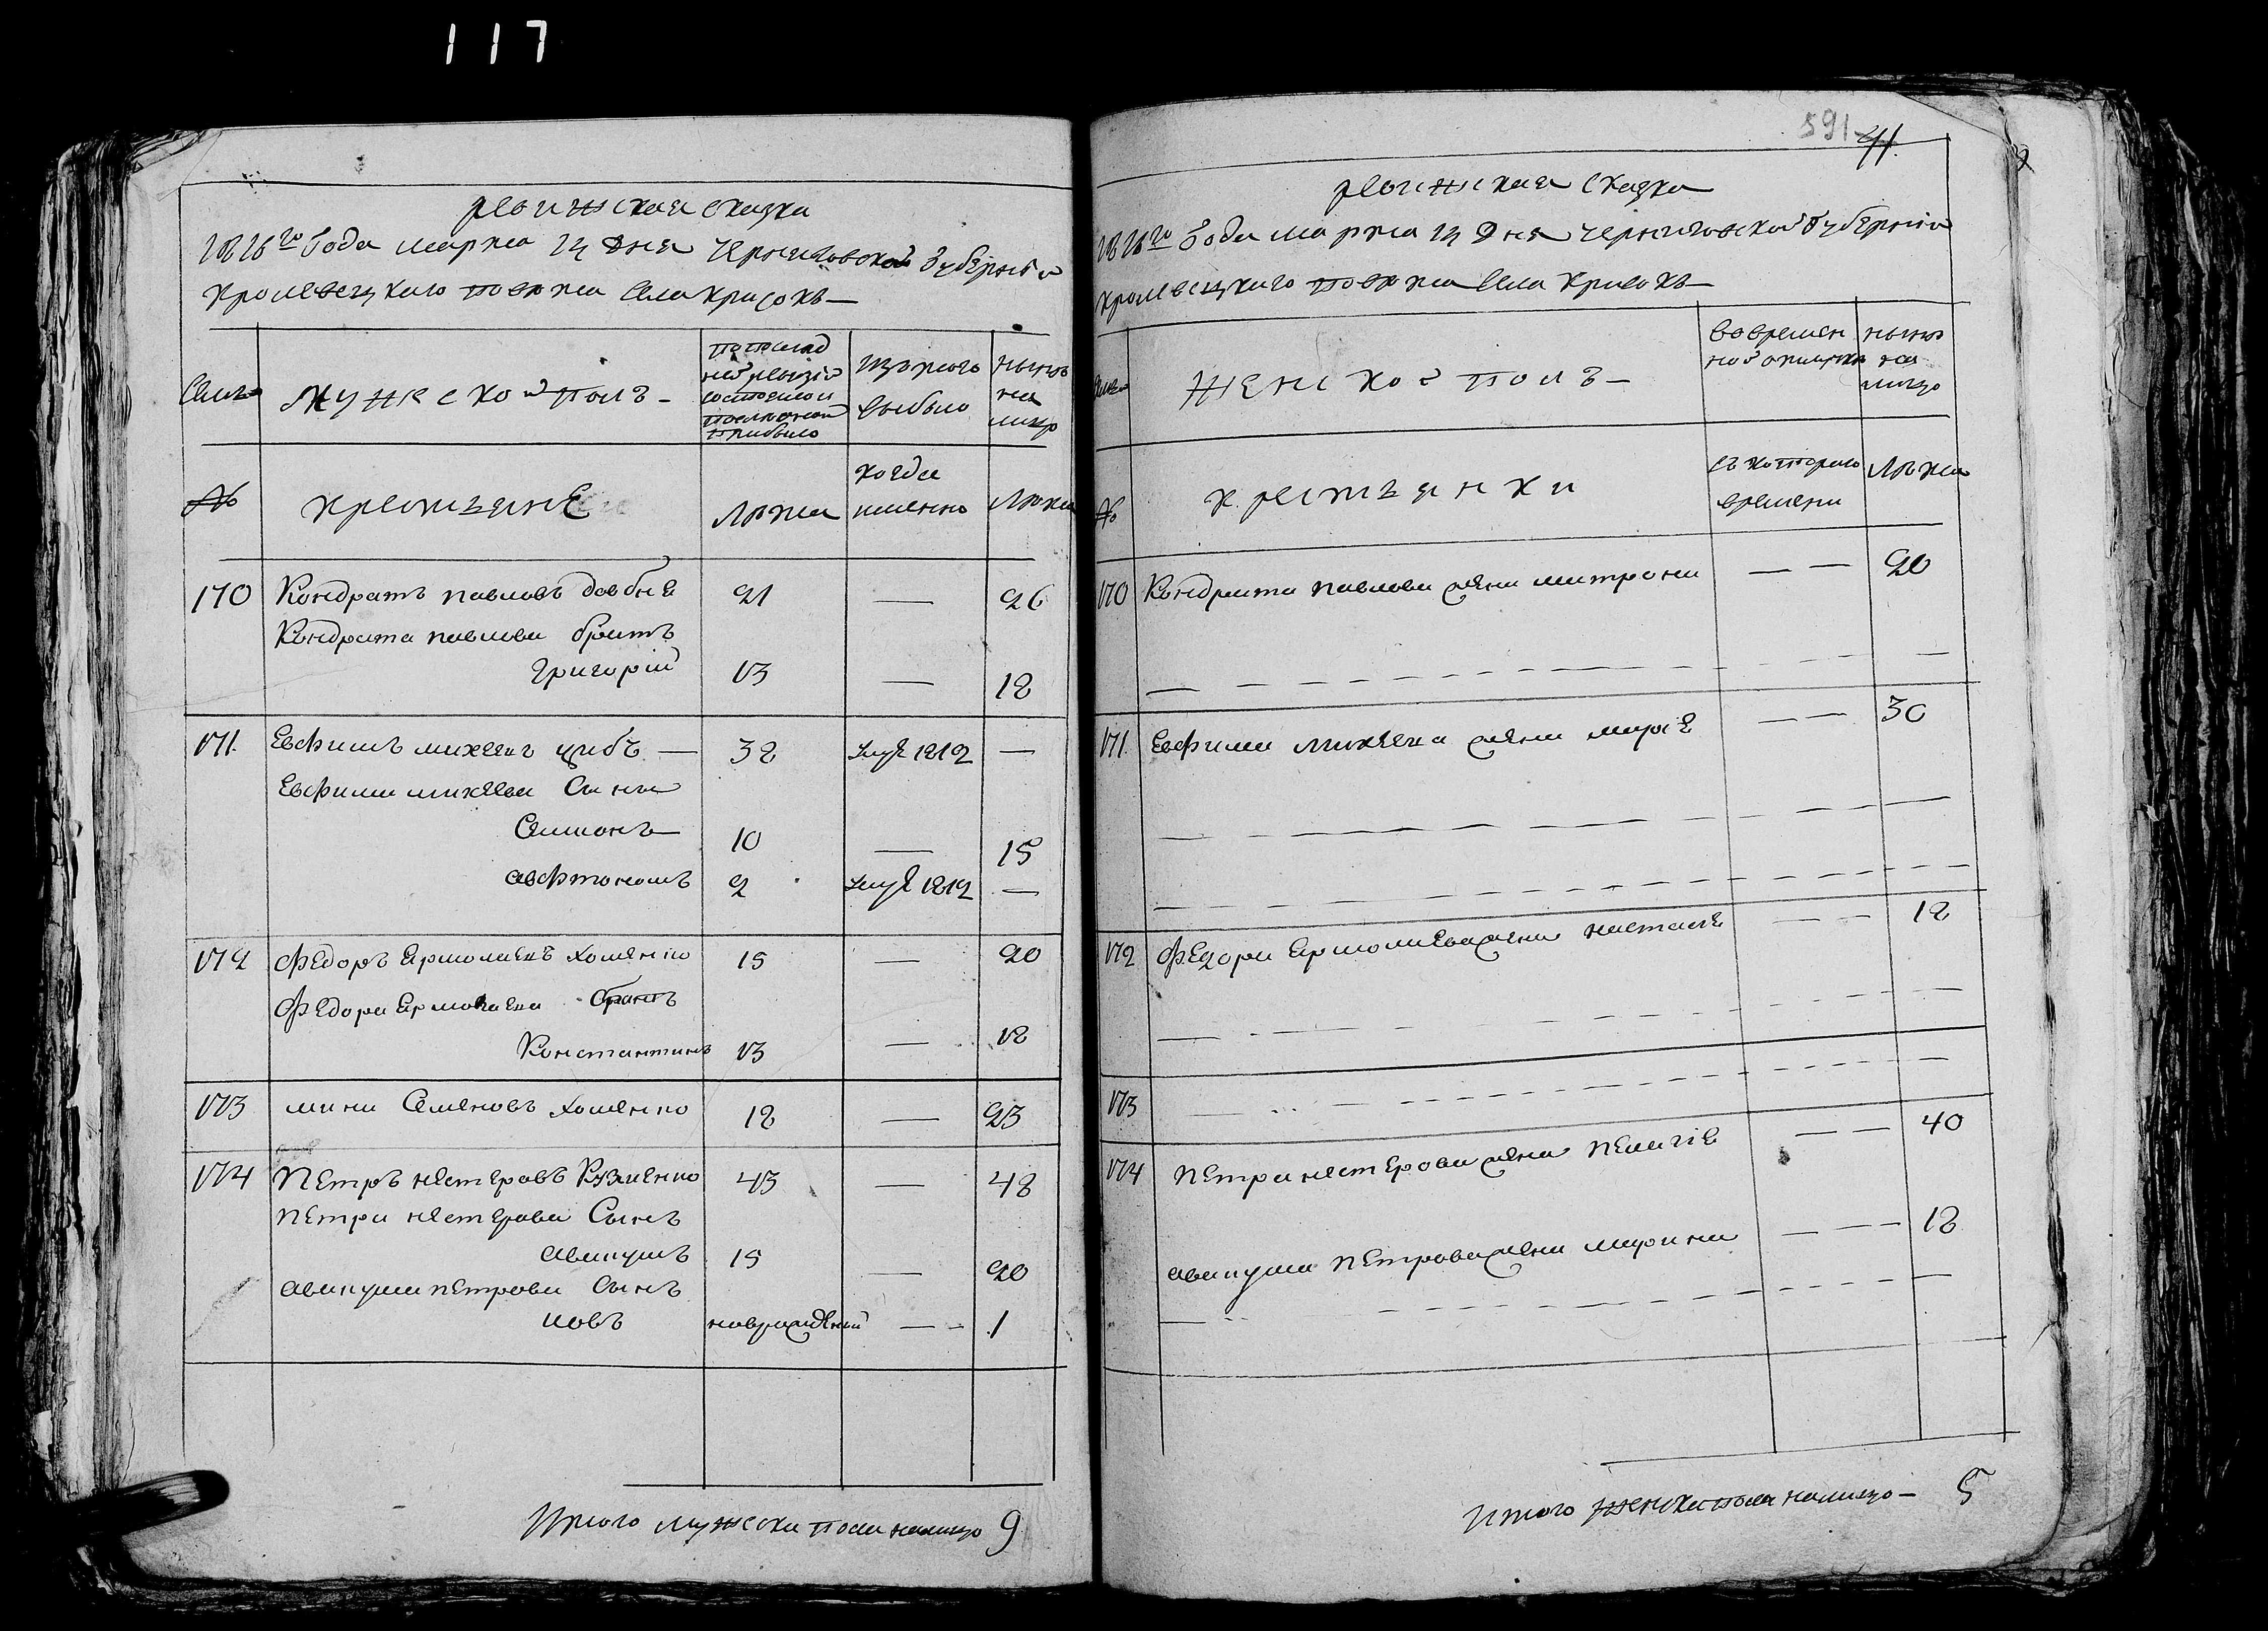 117
ревижская сказка
1816го Года марта 14 Дня Черниговской Губернїи
Кролевецкаго повета Села Крисокъ —
Семьи
Мужеской полъ —
по послед
ней ревизїи
состояло и
после оной
прибыло
Изтого
выбыло
ныне
на
лицо
№
крестьяне
Лѣта
когда
именно
Лѣта
170 Кондратъ павловъ довбня 21 — 26
Кондрата павлова братъ
Григорій 13 — 18
171. Евфимъ михеевъ цибъ — 32 умре 1812 —
Евфима михеева Сына
Семионъ — 10 — 15
авфтономъ 2 умре 1812 —
172 Федоръ Ермолаевъ хоменко 15 — 20
Федора Ермолаева братъ
Константинъ 13 — 18
173 мина Семеновъ хоменко 18 — 23
174 Петръ нестеровъ Кузменко 43 — 48
Петра нестерова Сынъ
авакумъ 15 — 20
авакума петрова Сынъ
иовъ новрожденый — — 1
Итого мужеска пола налицо 9
591 41.
ревижская сказка
1816го Года марта 14 Дня Черниговской Губернїи
Кролевецкаго повета Села Крисокъ —
Семьи
Женской полъ —
во времен
ной отлучке
ныне
на
лицо
№
крестьянки
съ котораго
времени
Лѣта
170 Кондрата павлова жена митрона — — 20
171. Евфима михеева жена марїя — — 30
172 Федора Ермолаева жена настася — — 18
173
174 Петра нестерова жена пелагїя — — 40
авакума петрова жена марина — — 18
Итого женска пола налицо — 5